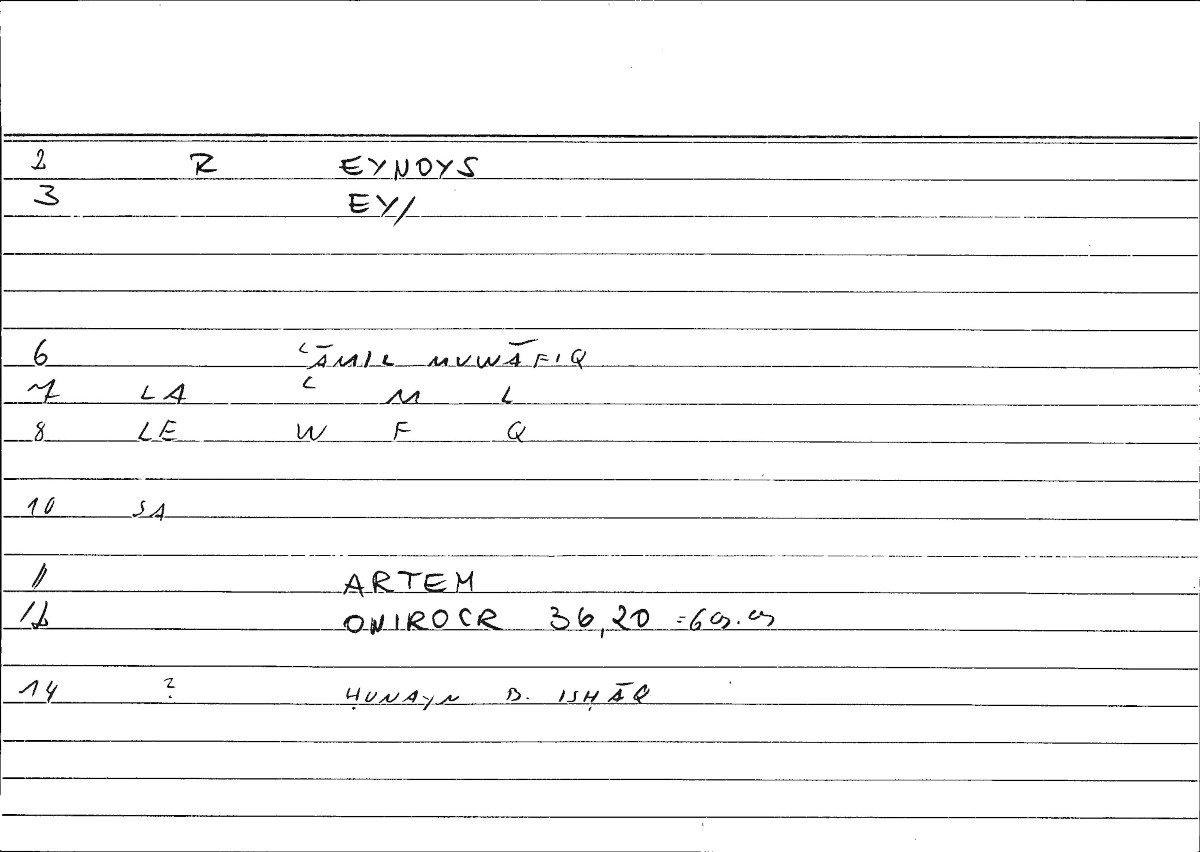 2 R EYNOYS
3 EY/
6 ʿĀMIL MUWĀFIQ
7 LA ʿ M L
8 LE W F Q
10 SA
11 ARTEM
12 ONIROCR 36,20
14 ? ḤUNAYN B. ISḤĀQ